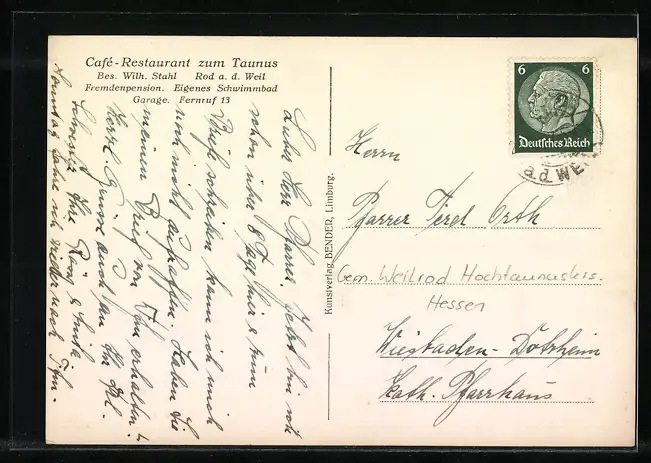 Café-Restaurant zum Taunus
Bes. Wilh. Stahl Rod a. d. Weil
Fremdenpension. Eigenes Schwimmbad
Garage. Fernruf 13
Lieber Herr Pfarrer, jetzt bin ich
schon über 8 Tage hier & zum
Briefe schreiben kann ich mich
noch nicht aufraffen. Haben Sie
meinen Brief von erhalten?
Herzl. Grüsse auch an
Ihre
Sonntag fahre ich wieder nach
Kunstverlag BENDER, Limburg.
6 6
Deutsches Reich
a.d. WEIL
Herrn
Pfarrer Orth
Gem. Weilrod Hochtaunuskrs.
Hessen
Wiesbaden-Dotzheim
kath. Pfarrhaus